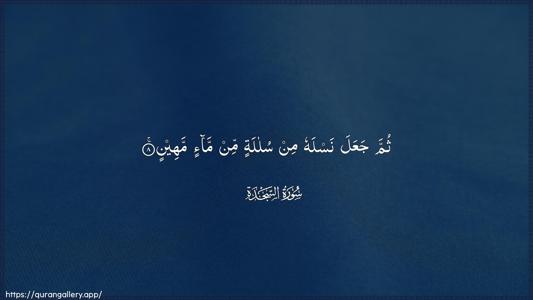 ثُمَّ جَعَلَ نَسْلَهٗ مِنْ سُلٰلَةٍ مِّنْ مَّآءٍ مَّهِيْنٍۚ ۝٨
سُوْرَةُ السَّجْدَةِ
https://qurangallery.app/